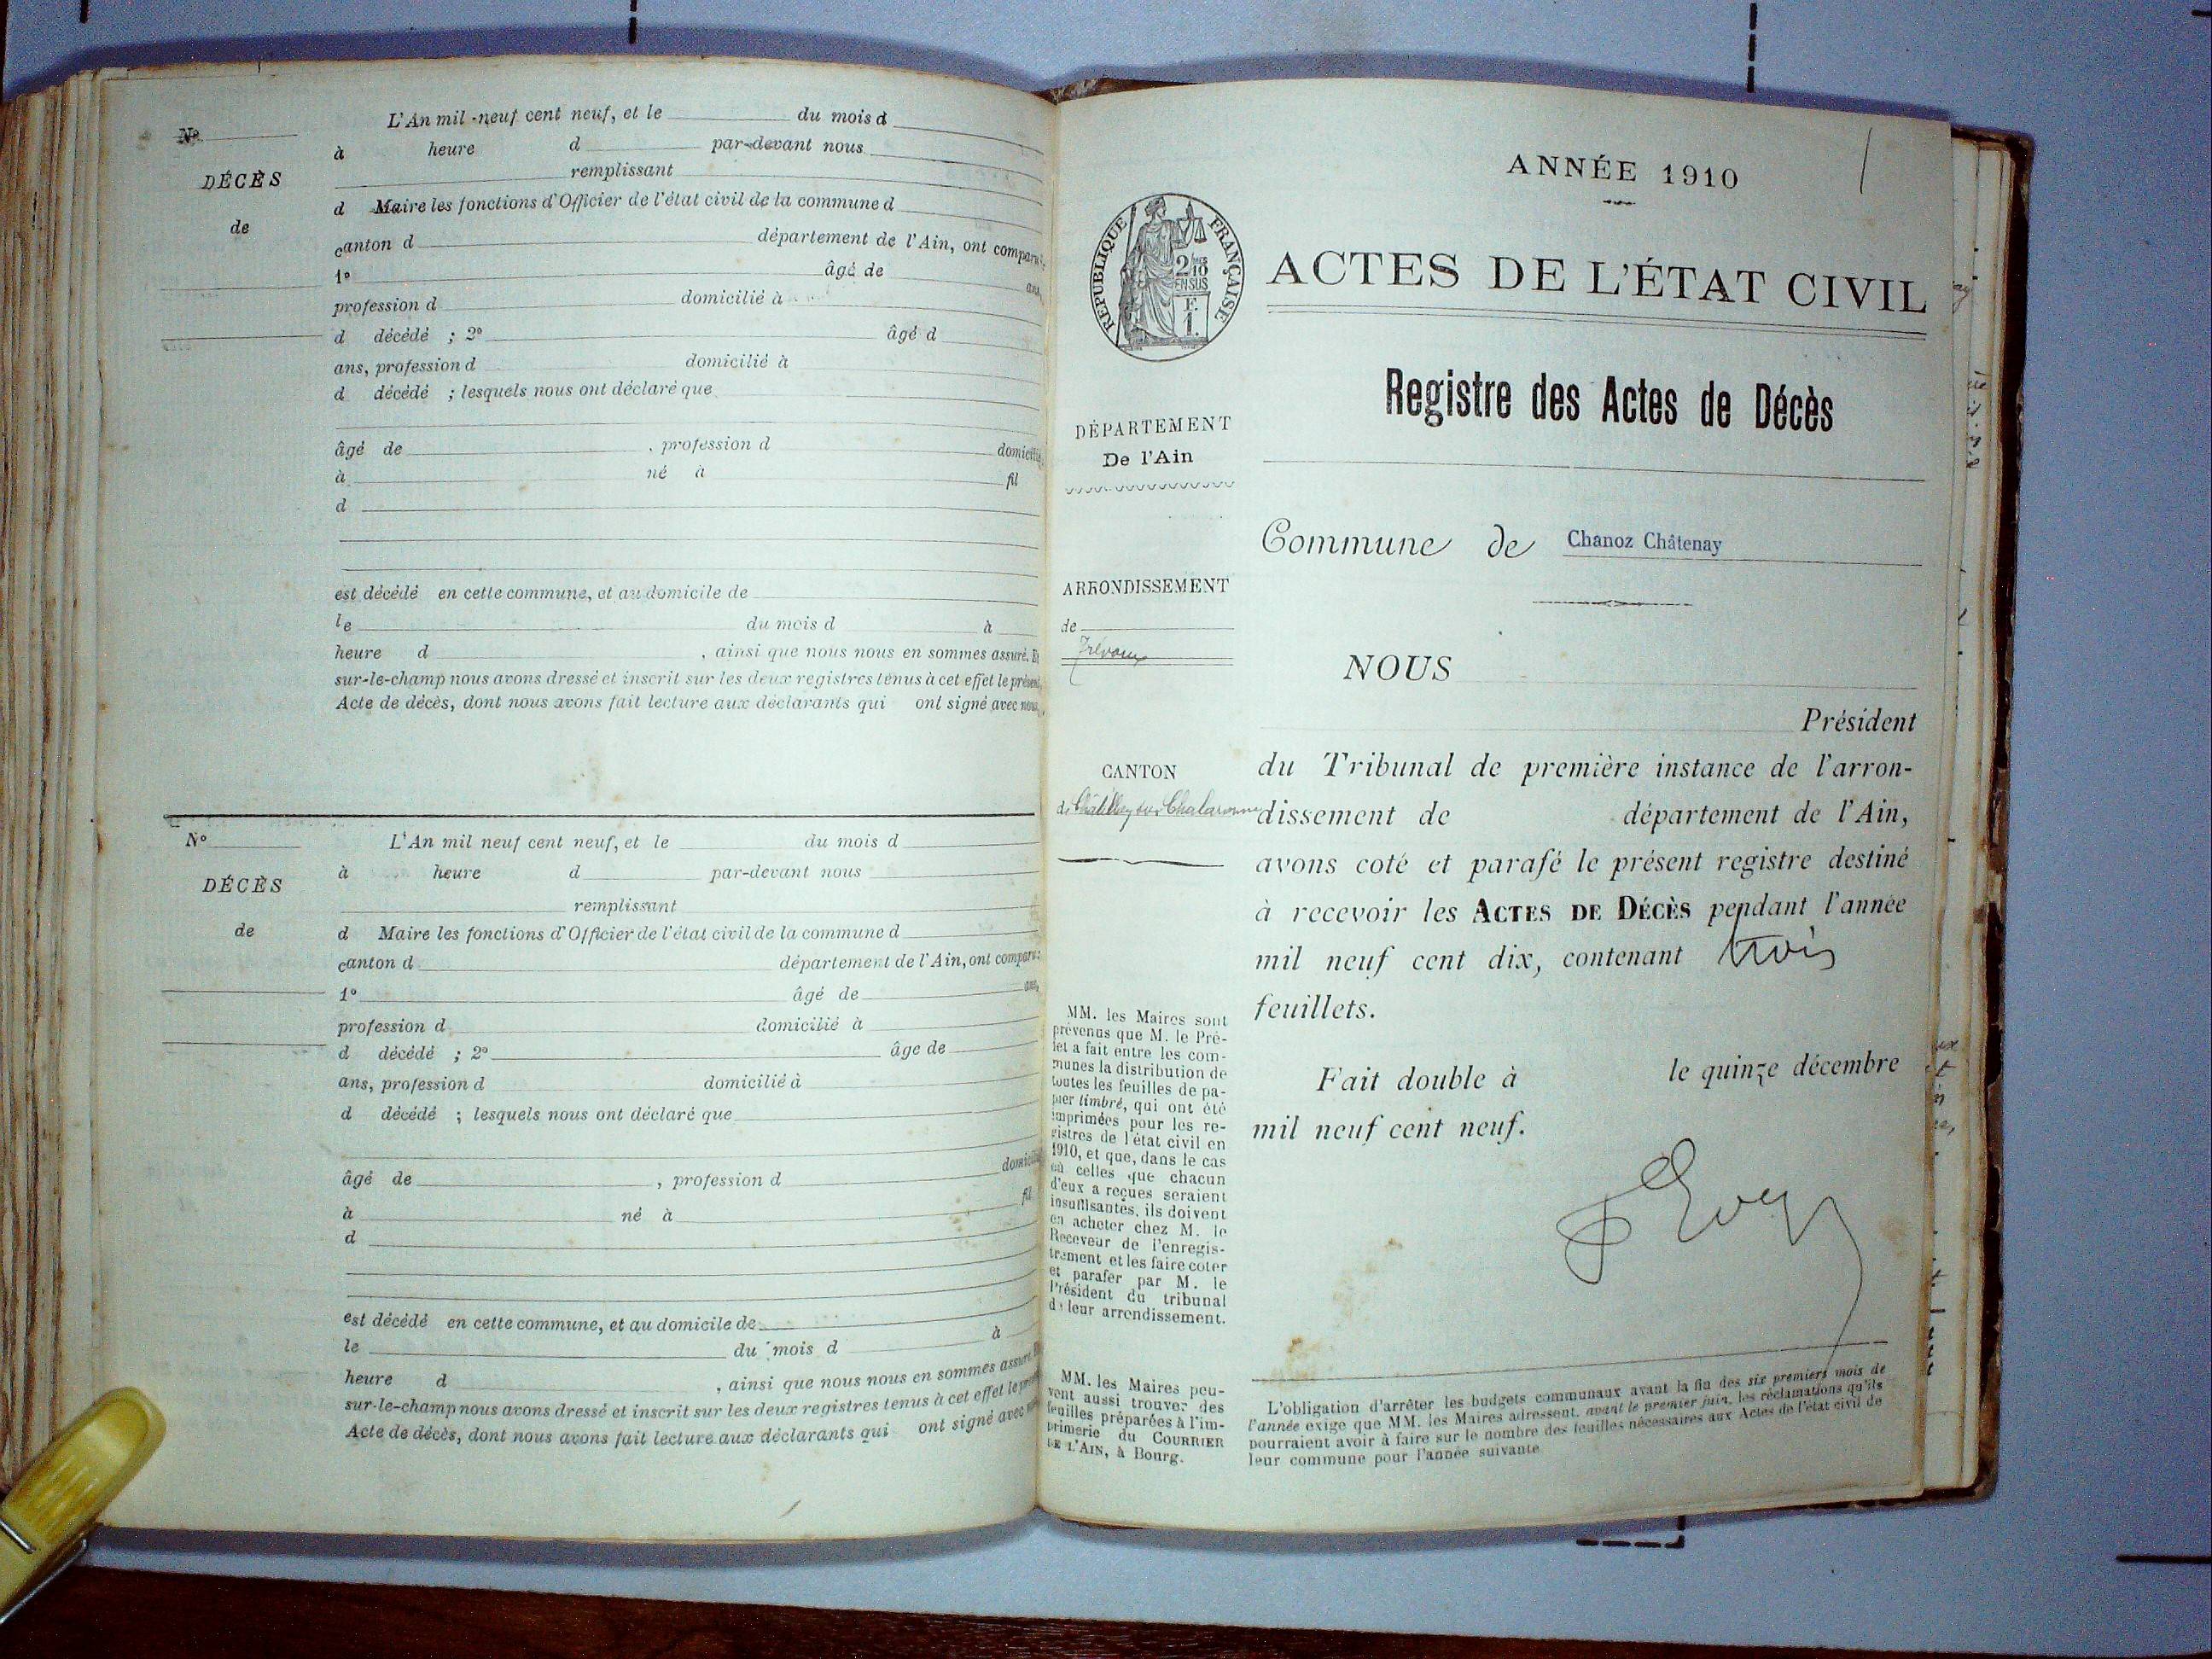 N°
DÉCÈS
de
L'An mil-neuf cent neuf, et le du mois d
à heure d par-devant nous
remplissant
d Maire les fonctions d'Officier de l'état civil de la commune d
canton d département de l'Ain, ont comparu:
1° âgé de ans,
profession d domicilié à
d décédé ; 2° âgé d
ans, profession d domicilié à
d décédé ; lesquels nous ont déclaré que
âgé de , profession d domicilié
à né à fil
d
est décédé en cette commune, et au domicile de
le du mois d à
heure d , ainsi que nous nous en sommes assuré. Et
sur-le-champ nous avons dressé et inscrit sur les deux registres tenus à cet effet le présent
Acte de décès, dont nous avons fait lecture aux déclarants qui ont signé avec nous.
N°
DÉCÈS
de
L'An mil neuf cent neuf, et le du mois d
à heure d par-devant nous
remplissant
d Maire les fonctions d'Officier de l'état civil de la commune d
canton d département de l'Ain, ont comparu:
1° âgé de ans,
profession d domicilié à
d décédé ; 2° âge de
ans, profession d domicilié à
d décédé ; lesquels nous ont déclaré que
âgé de , profession d domicilié
à né à fil
d
est décédé en cette commune, et au domicile de
le du mois d à
heure d , ainsi que nous nous en sommes assuré.
sur-le-champ nous avons dressé et inscrit sur les deux registres tenus à cet effet le
Acte de décès, dont nous avons fait lecture aux déclarants qui ont signé avec
ANNÉE 1910
RÉPUBLIQUE FRANÇAISE
2/10
EN SUS
F.
1.
ACTES DE L'ÉTAT CIVIL
Registre des Actes de Décès
DÉPARTEMENT
De l'Ain
Commune de Chanoz Châtenay
ARRONDISSEMENT
de
Trévoux
CANTON
de Châtillon sur Chalaronne
NOUS
Président
du Tribunal de première instance de l'arron-
dissement de département de l'Ain,
avons coté et parafé le présent registre destiné
à recevoir les ACTES DE DÉCÈS pendant l'année
mil neuf cent dix, contenant trois
feuillets.
Fait double à le quinze décembre
mil neuf cent neuf.
MM. les Maires sont
prévenus que M. le Pré-
fet a fait entre les com-
munes la distribution de
toutes les feuilles de pa-
pier timbré, qui ont été
imprimées pour les re-
gistres de l'état civil en
1910, et que, dans le cas
où celles que chacun
d'eux a reçues seraient
insuffisantes, ils doivent
en acheter chez M. le
Receveur de l'enregis-
trement et les faire coter
et parafer par M. le
Président du tribunal
de leur arrondissement.
MM. les Maires peu-
vent aussi trouver des
feuilles préparées à l'im-
primerie du COURRIER
DE L'AIN, à Bourg.
L'obligation d'arrêter les budgets communaux avant la fin des six premiers mois de
l'année exige que MM. les Maires adressent, avant le premier juin, les réclamations qu'ils
pourraient avoir à faire sur le nombre des feuilles nécessaires aux Actes de l'état civil de
leur commune pour l'année suivante